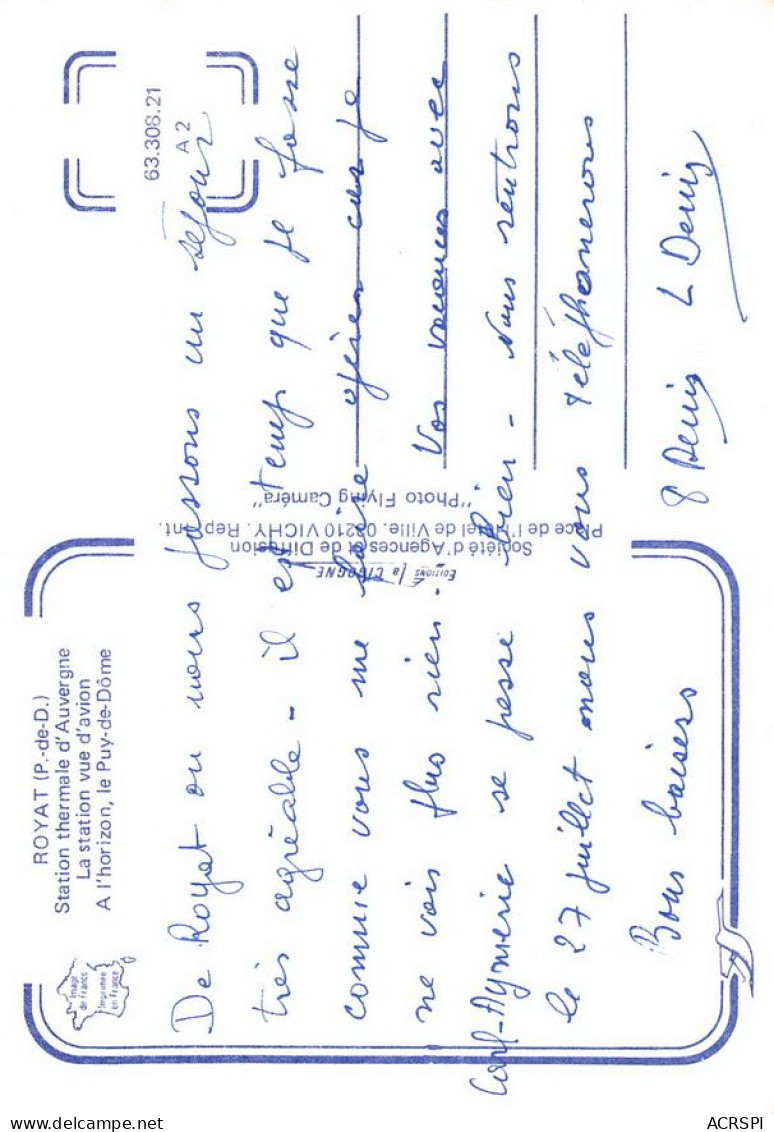 ROYAT (P.-de-D.)
Station thermale d'Auvergne
La station vue d'avion
A l'horizon, le Puy-de-Dôme
Image
de France
Imprimée
en France
63.308.21
A 2
De Royat ou nous passons un séjour
très agréable - il est temp que je fasse
comme vous me faire car je
ne vois plus rien. Vos vacances avec
se passe bien - Nous rentrons
le 27 juillet nous vous téléphonerons
Bons baisers Denis L Denis
EDITIONS la CIGOGNE
Société d'Agences et de Diffusion
Place de l'Hôtel de Ville. 03210 VICHY. Rep. int.
"Photo Flying Caméra"
ACRSPI